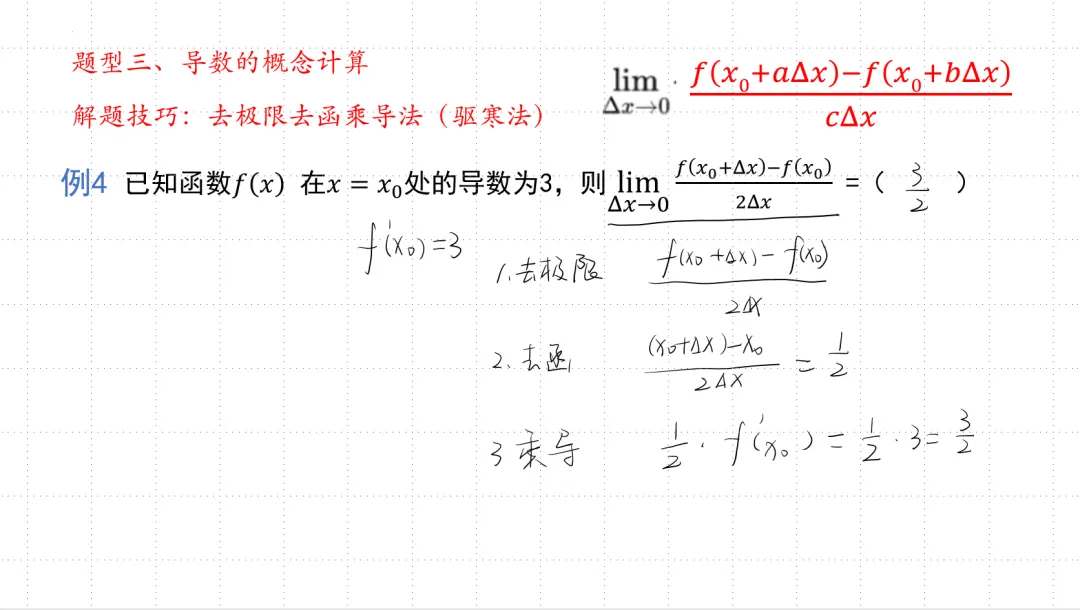 题型三、导数的概念计算
解题技巧：去极限去函乘导法（驱寒法）
lim Δx→0 · f(x₀+aΔx)−f(x₀+bΔx) / cΔx
例4 已知函数f(x) 在x = x₀处的导数为3，则 lim Δx→0 f(x₀+Δx)−f(x₀) / 2Δx =（ 3/2 ）
f'(x₀)=3
1.去极限 f(x₀+Δx)−f(x₀) / 2Δx
2.去函 (x₀+Δx)−x₀ / 2Δx = 1/2
3 乘导 1/2 · f'(x₀) = 1/2 · 3 = 3/2